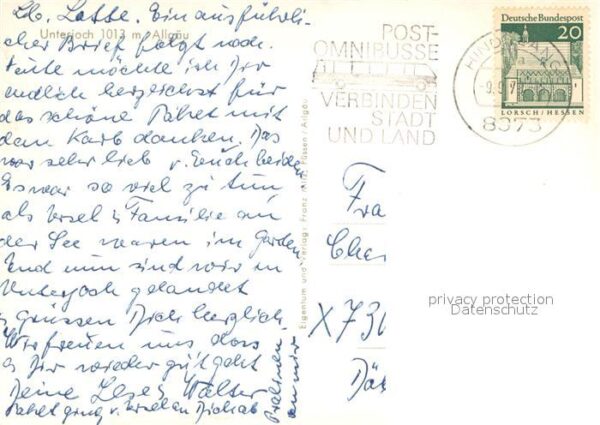 Lb. Lotte. Ein ausführli-
cher Brief folgt noch.
Unterjoch 1013 m, Allgäu
Heute möchte ich Dir
endlich herzlichst für
das schöne Paket mit
dem Korb danken. Das
war sehr lieb v. Euch beiden
Es war so viel zu tun
als Ursel u Familie an
der See waren im Garden
Und nun sind wir in
Unterjoch gelandet
u grüssen Dich herzlich.
Wir freuen uns dass
es Dir wieder gut geht
Deine Lese u Walter
Paket ging v. Ursel an Dich ab
Pralinen
von mir
Eigentum und Verlag: Franz Füssen / Allgäu
POST-
OMNIBUSSE
VERBINDEN
STADT
UND LAND
HINDELANG
8973
Deutsche Bundespost
20
LORSCH / HESSEN
Fra
X 730
privacy protection
Datenschutz